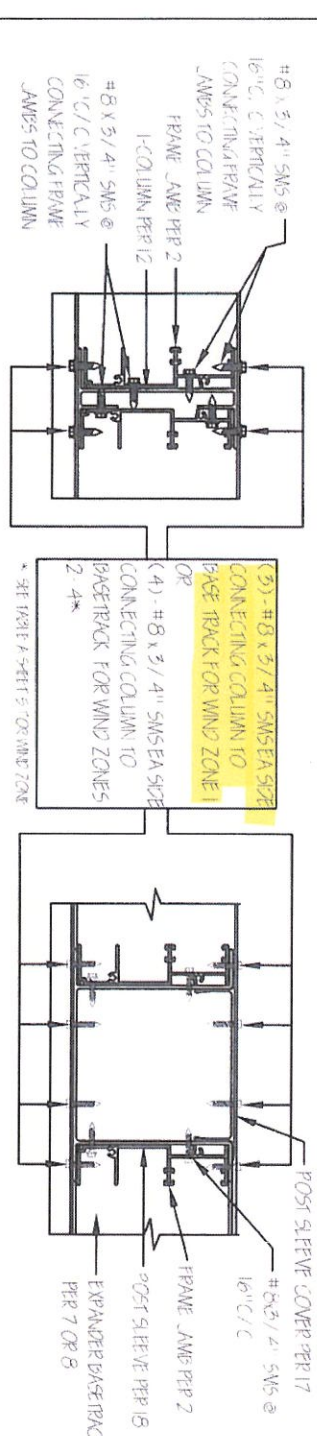 #8 x 3/4" SMS @
16" C/C VERTICALLY
CONNECTING FRAME
JAMBS TO COLUMN
FRAME JAMB PER 2
I-COLUMN PER 12
#8 x 3/4" SMS @
16" C/C VERTICALLY
CONNECTING FRAME
JAMBS TO COLUMN
(3) - #8 x 3/4" SMS EA SIDE
CONNECTING COLUMN TO
BASE TRACK FOR WIND ZONE 1
OR
(4) - #8 x 3/4" SMS EA SIDE
CONNECTING COLUMN TO
BASE TRACK FOR WIND ZONES
2 - 4*
* SEE TABLE A SHEET 5 FOR WIND ZONE
POST SLEEVE COVER PER 17
#8x3/4" SMS @
16" C/C
FRAME JAMB PER 2
POST SLEEVE PER 18
EXPANDER BASE TRAC
PER 7 OR 8